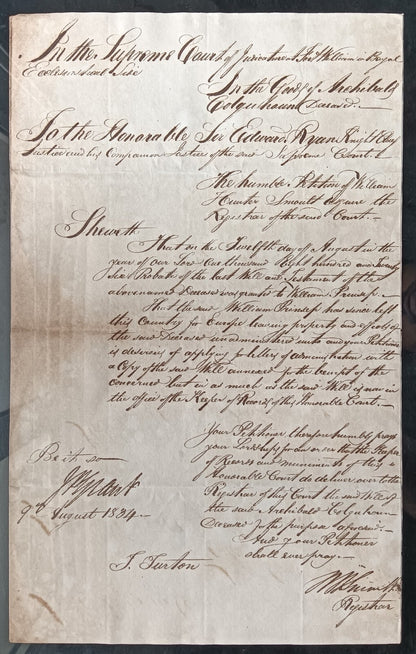 In the Supreme Court of Judicature at Fort William in Bengal
Ecclesiastical Side
In the Goods of Archibald
Colquhoun Deceased.
To the Honorable Sir Edward Ryan Knight Chief
Justice and his Companion Justices of the said Supreme Court.
The humble Petition of William
Hunter Smoult Esquire the
Registrar of the said Court.
Sheweth
That on the Twelfth day of August in the
year of our Lord One thousand Eight hundred and Twenty
Probate of the last Will and Testament of the
abovenamed Deceased was granted to William Prinsep.
That the said William Prinsep has since left
this Country for Europe leaving property and effects of
the said Deceased unadministered unto and your Petitioner
is desirous of applying for letters of administration with
a Copy of the said Will annexed for the benefit of the
concerned but in as much as the said Will is now in
the office of the Keeper of Records of this Honorable Court.
Your Petitioner therefore humbly prays
your Lordships for an order that the Keeper
of Records and muniments of this
Honorable Court do deliver over to the
Registrar of this Court the said Will of
the said Archibald Colquhoun
Deceased for the purpose aforesaid.
And your Petitioner
shall ever pray.
Be it so
J P Grant
9th August 1834.
T. Turton
W H Smoult
Registrar